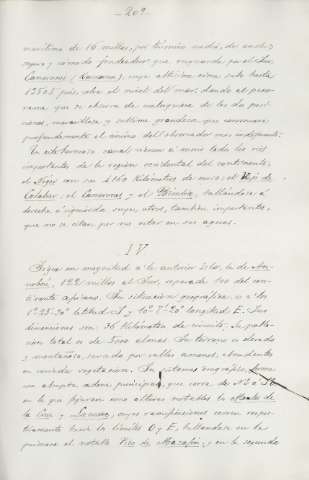 - 20 -
marítima de 16 millas, por término medio, de ancho,
segura y cómodo fondeadero que resguarda por el Sur
Camarones cuya altísima cima sube hasta
pies, sobre el nivel del mar, dando al pano-
rama que se observa de cualquiera de las dos posi-
ciones, maravillosa y sublime grandeza que conmueve
profundamente el ánimo del observador mas indiferente.
En este hermoso canal vienen á morir todos los rios
importantes de la región occidental del continente;
el Niger con sus 4160 Kilómetros de curso; el Viejo de
Calabar, el Camarones y el hallándose, á
derecha é izquierda suya, otros, tambien importantes,
que no se citan por no estar en sus aguas.
IV
Sigue en magnitud á la anterior isla, la de Ano-
nobón, 122 millas al Sur, separada del con-
tinente africano. Su situación geográfica es á los
1° 25' 30" latitud S. y longitud E. Sus
dimensiones son 36 Kilómetros de circuito. Su pobla-
ción total es de 3000 almas. Su terreno es elevado
y montañoso, cercado por valles amenos, abundantes
en variada vegetación. Su sistema orográfico, forma
una abrupta cadena principal que corre de N. á S.
en la que figuran como alturas notables los Montes de
la Cruz y cuyas ramificaciones corren respec-
tivamente hacia los límites O y E, hallándose en la
primera el notable Pico de y en la segunda